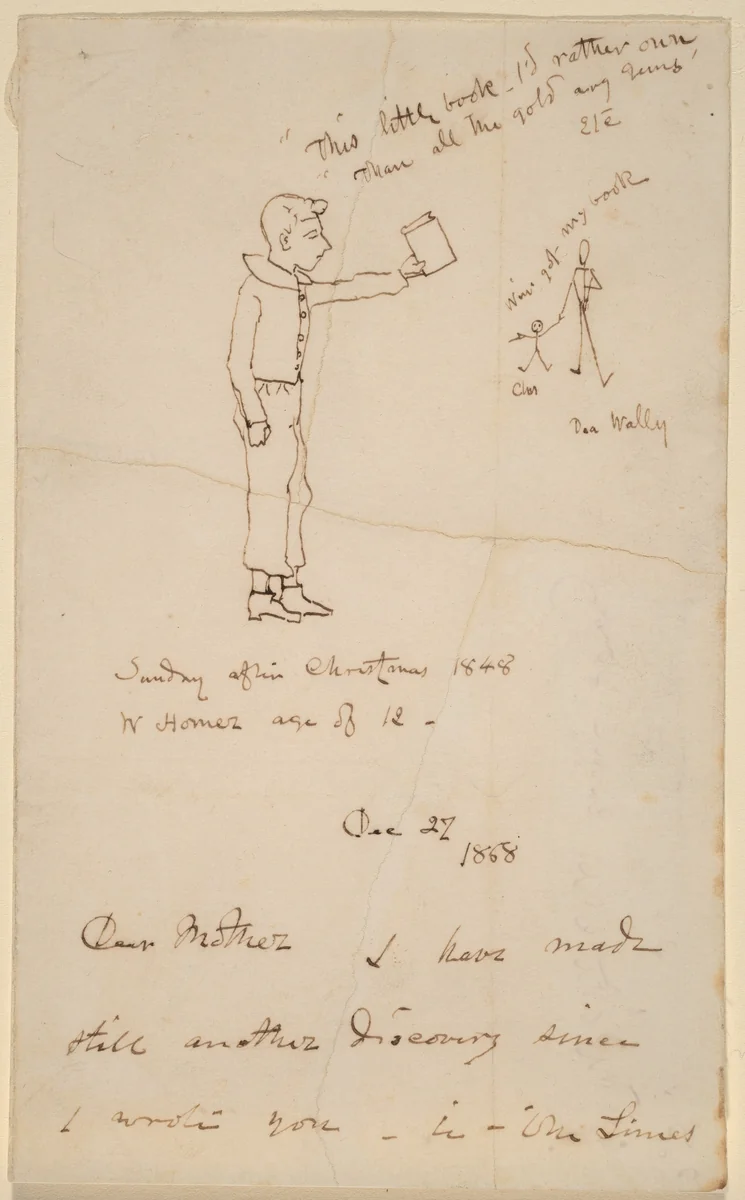 "This little book - I'd rather own
"Than all the gold any gems'
Etc
I've got my book
Chas
Dea Wally
Sunday after Christmas 1848
W Homer age of 12 -
Dec 27
1868
Dear Mother I have made
still another discovery since
I wrote you - in - "the Times